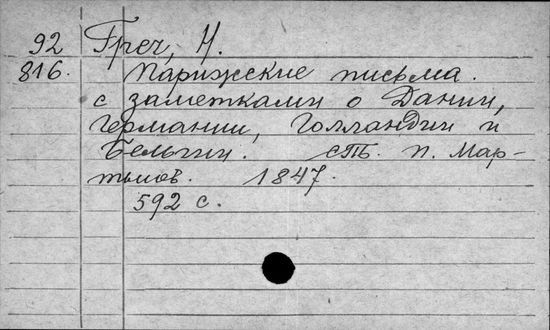 92 Греч, Н.
816. Парижские письма.
с заметками о Дании,
Германии, Голландии и
Бельгии. СПб. п. Мар-
тынов. 1847.
592 с.